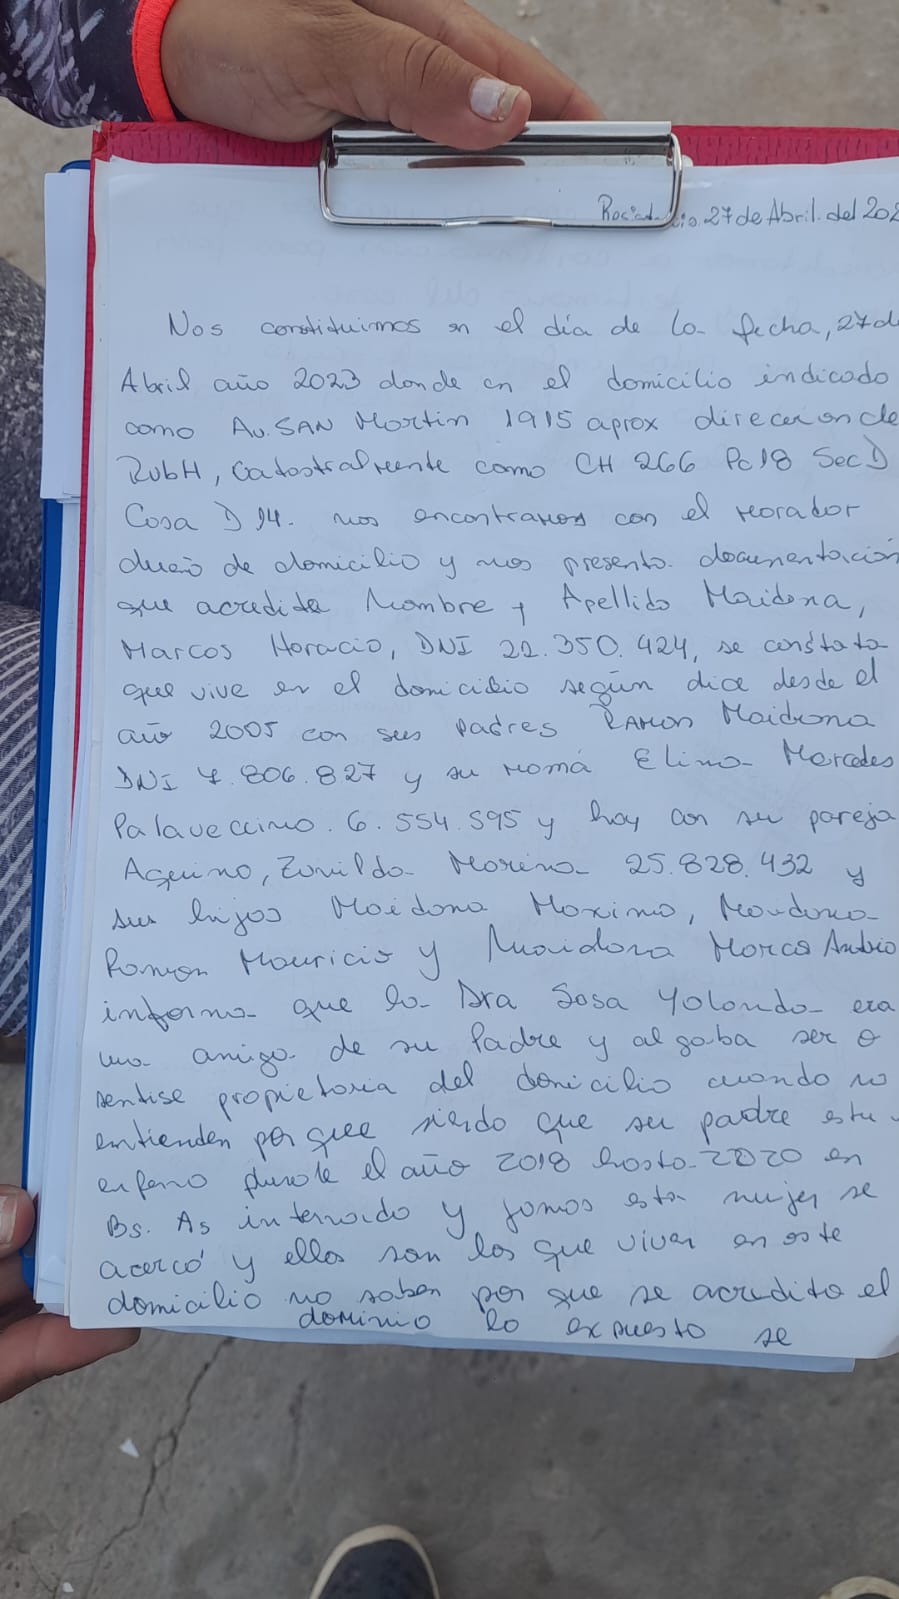 27 de Abril. del 202
Nos constituimos en el día de la fecha, 27 de
Abril año 2023 donde en el domicilio indicado
como Av. SAN Martin 1915 aprox direccion de
RUBH, Catastralmente como CH 266 Pc 18 Sec D
Casa D 14. nos encontramos con el morador
dueño de domicilio y nos presento documentación
que acredita Nombre y Apellido Maidana,
Marcos Horacio, DNI 22.350.424, se constata
que vive en el domicilio según dice desde el
año 2005 con sus padres RAMON Maidana
DNI 7.806.827 y su mamá Elina Mercedes
Palaveccino. 6.554.595 y hoy con su pareja
Aquino, Zunilda Morena 25.828.432 y
sus hijos Maidana Maximo, Maidana
Ramon Mauricio y Maidana Marcos
informa que la Dra Sosa Yolanda era
una amiga de su Padre y al gaba ser o
sentise propietaria del domicilio cuando no
entienden por que siendo que su padre estu
enfermo durate el año 2018 hasta 2020 en
Bs. As internado y jamas esta mujer se
acercó y ellos son los que viven en este
domicilio no saben por que se acredito el
dominio lo expuesto se